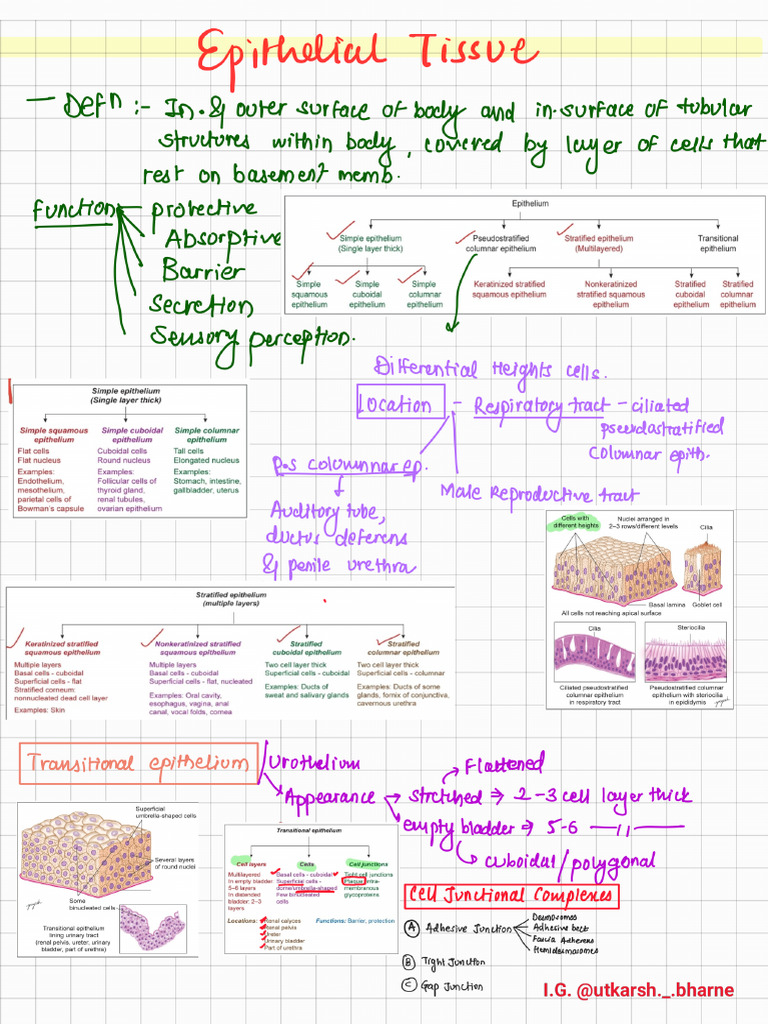 Epithelial Tissue
— Defn :- In. & outer surface of body and in. surface of tubular
structures within body, covered by layer of cells that
rest on basement memb.
function — protective
Absorptive
Barrier
Secretion
Sensory perception.
Epithelium
Simple epithelium
(Single layer thick)
Pseudostratified
columnar epithelium
Stratified epithelium
(Multilayered)
Transitional
epithelium
Simple
squamous
epithelium
Simple
cuboidal
epithelium
Simple
columnar
epithelium
Keratinized stratified
squamous epithelium
Nonkeratinized
stratified squamous
epithelium
Stratified
cuboidal
epithelium
Stratified
columnar
epithelium
Differential Heights cells.
Location - Respiratory tract - ciliated
pseudostratified
Columnar epith.
P.S columnnar ep.
Male Reproductive tract
Auditory tube,
ductus deferens
& penile urethra
Simple epithelium
(Single layer thick)
Simple squamous
epithelium
Flat cells
Flat nucleus
Examples:
Endothelium,
mesothelium,
parietal cells of
Bowman's capsule
Simple cuboidal
epithelium
Cuboidal cells
Round nucleus
Examples:
Follicular cells of
thyroid gland,
renal tubules,
ovarian epithelium
Simple columnar
epithelium
Tall cells
Elongated nucleus
Examples:
Stomach, intestine,
gallbladder, uterus
Cells with
different heights
Nuclei arranged in
2–3 rows/different levels
Cilia
Basal lamina
Goblet cell
All cells not reaching apical surface
Cilia
Steriocilia
Ciliated pseudostratified
columnar epithelium
in respiratory tract
Pseudostratified columnar
epithelium with steriocilia
in epididymis
Stratified epithelium
(multiple layers)
Keratinized stratified
squamous epithelium
Multiple layers
Basal cells - cuboidal
Superficial cells - flat
Stratified corneum:
nonnucleated dead cell layer
Examples: Skin
Nonkeratinized stratified
squamous epithelium
Multiple layers
Basal cells - cuboidal
Superficial cells - flat, nucleated
Examples: Oral cavity,
esophagus, vagina, anal
canal, vocal folds, cornea
Stratified
cuboidal epithelium
Two cell layer thick
Superficial cells - cuboidal
Examples: Ducts of
sweat and salivary glands
Stratified
columnar epithelium
Two cell layer thick
Superficial cells - columnar
Examples: Ducts of some
glands, fornix of conjunctiva,
cavernous urethra
Transitional epithelium / Urothelium
Appearance → stretched ⇒ 2-3 cell layer thick
Flattened
empty bladder ⇒ 5-6 —〃—
cuboidal / polygonal
Superficial
umbrella-shaped cells
Several layers
of round nuclei
Some
binucleated cells
Transitional epithelium
lining urinary tract
(renal pelvis, ureter, urinary
bladder, part of urethra)
Transitional epithelium
Cell layers
Multilayered
In empty bladder
5–6 layers
In distended
bladder: 2–3
layers
Cells
Basal cells - cuboidal
Superficial cells -
dome/umbrella-shaped
Few binucleated
cells
Cell junctions
Tight cell junctions
Plaque:
membranous
glycoproteins
Locations: Renal calyces
Renal pelvis
Ureter
Urinary bladder
Part of urethra
Functions: Barrier, protection
Cell Junctional Complexes
A Adhesive Junction
Desmosomes
Adhesive belt
Fascia Adherens
Hemidesmosomes
B Tight Junction
C Gap Junction
I.G. @utkarsh._.bharne